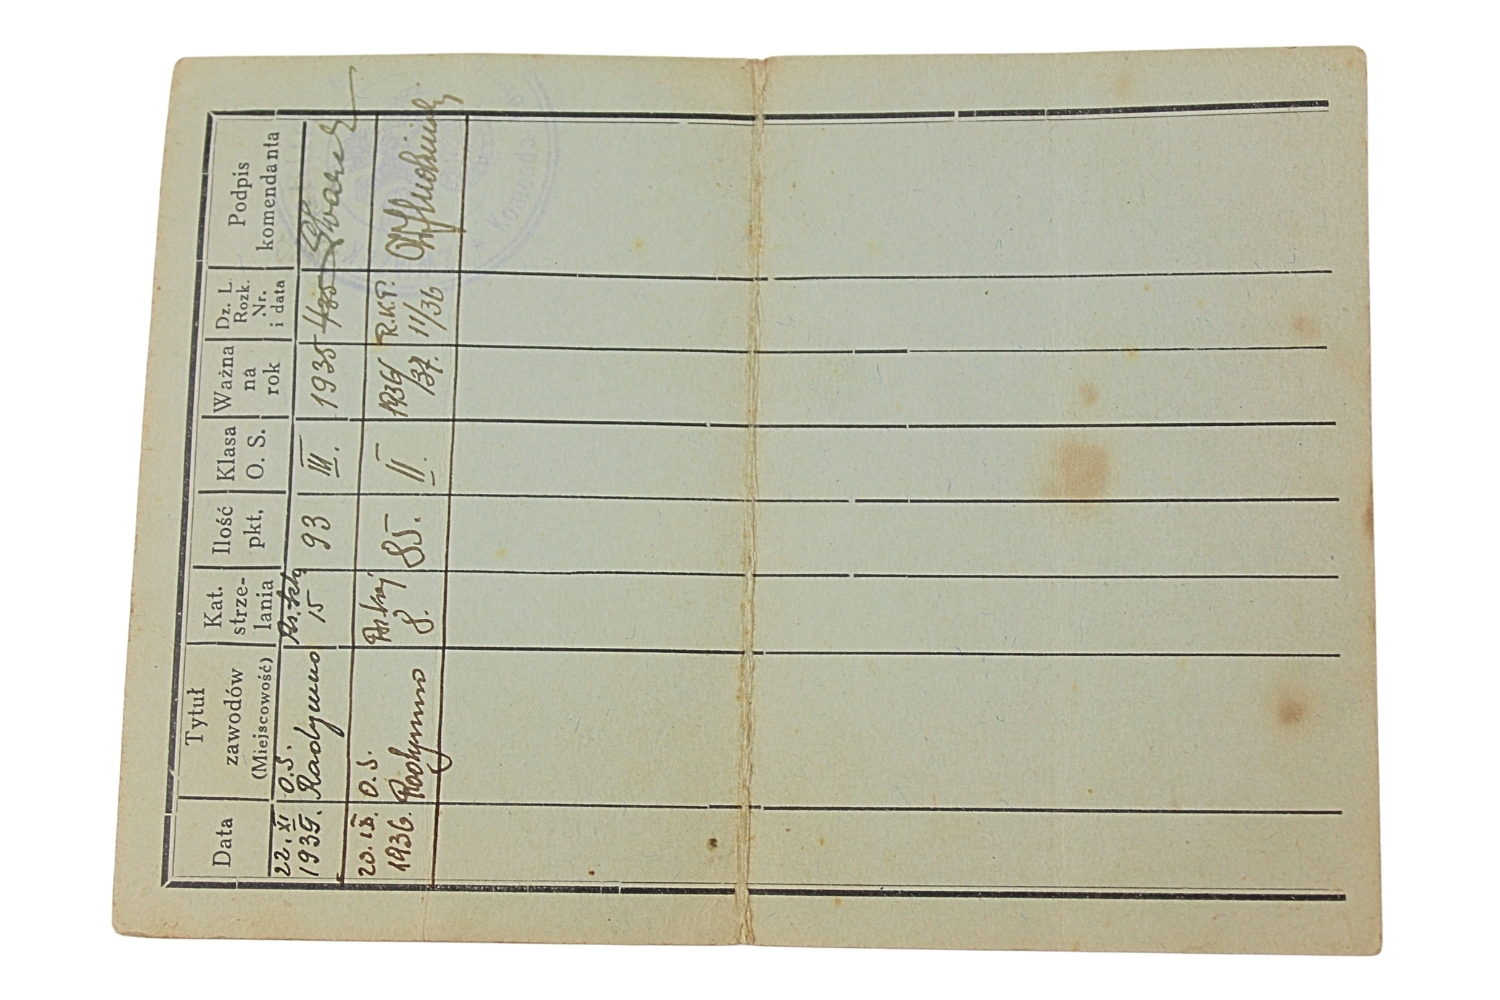 Data
Tytuł
zawodów
(Miejscowość)
Kat.
strze-
lania
Ilość
pkt,
Klasa
O. S.
Ważna
na
rok
Dz. L.
Rozk.
Nr.
i data
Podpis
komendanta
22. XI
1935.
O.S.
Radymno
15
93
III.
1935
4/35
20. IX.
1936.
O.S.
Radymno
8.
85.
II.
1936/
/37.
R.K.P.
11/36
Komenda